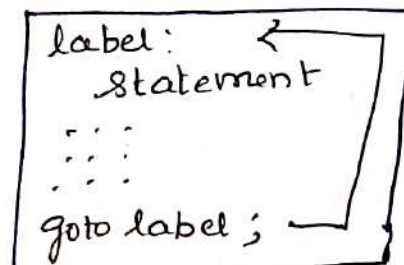 label:
statement
. . .
. . .
. . .
goto label;